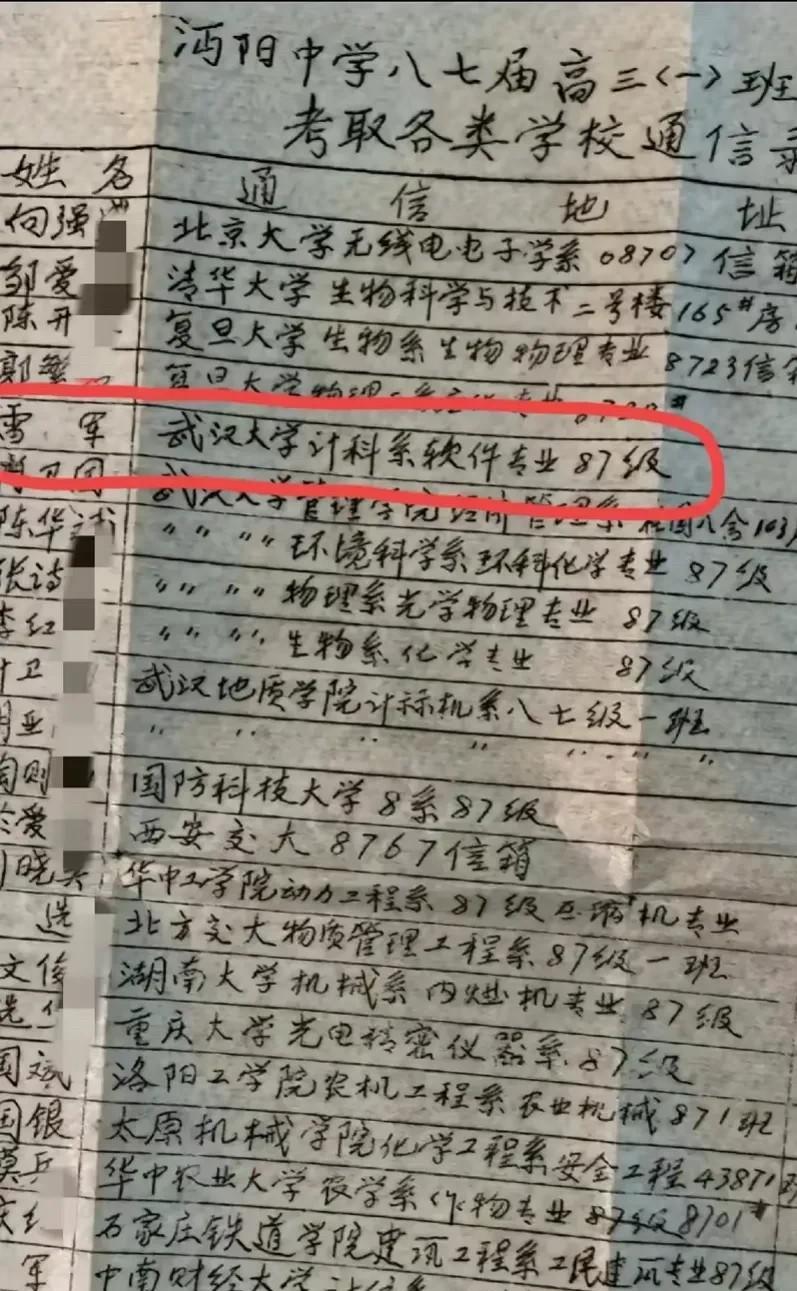 沔阳中学八七届高三〈一〉班
考取各类学校通信录
姓名 通信地址
向强 北京大学无线电电子学系 08707信箱
邹爱 清华大学生物科学与技术二号楼165#房
陈开 复旦大学生物系生物物理专业 8723信箱
郭 复旦大学物理
雷军 武汉大学计科系软件专业 87级
卫国 武汉大学管理学院经济管理系
陈华 〃 〃 〃〃环境科学系环科化学专业 87级
张诗 〃 〃 〃〃物理系光学物理专业 87级
李红 〃 〃 〃〃生物系化学专业 87级
叶卫 武汉地质学院计标机系八七级一班
胡亚 〃 〃 〃 〃 〃 〃 〃 〃
陶则 国防科技大学8系87级
爱 西安交大8767信箱
晓 华中工学院动力工程系87级压缩机专业
选 北方交大物质管理工程系87级一班
文俊 湖南大学机械系内燃机专业87级
选 重庆大学光电精密仪器系87级
国斌 洛阳工学院农机工程系农业机械871班
国银 太原机械学院化学工程系安全工程43871班
莫兵 华中农业大学农学系作物专业87级8701#
石家庄铁道学院建筑工程系工民建筑专业87级
军 中南财经大学计